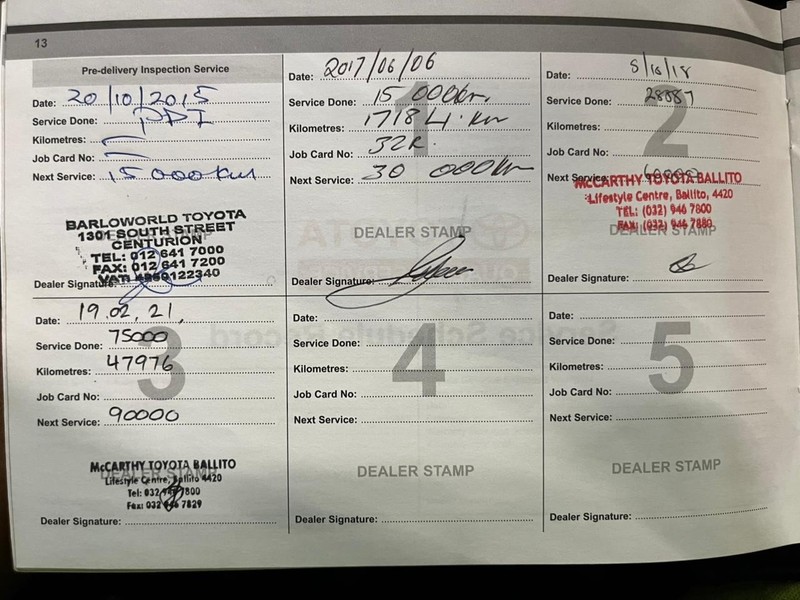 13
Pre-delivery Inspection Service
Date: 20/10/2015
Service Done: PDI
Kilometres:
Job Card No:
Next Service: 15 000 Km
BARLOWORLD TOYOTA
1301 SOUTH STREET
CENTURION
TEL: 012 641 7000
FAX: 012 641 7200
VAT: 4950122340
Dealer Signature:
1
Date: 2017/06/06
Service Done: 15 000km.
Kilometres: 17184. Km
Job Card No: 32R.
Next Service: 30 000Km
DEALER STAMP
Dealer Signature:
2
Date: 5/10/18
Service Done: 28887
Kilometres:
Job Card No:
Next Service:
McCARTHY TOYOTA BALLITO
Lifestyle Centre, Ballito, 4420
TEL: (032) 946 7800
FAX: (032) 946 7880
DEALER STAMP
3
Date: 19.02.21,
Service Done: 75000
Kilometres: 47976
Job Card No:
Next Service: 90000
DEALER STAMP
McCARTHY TOYOTA BALLITO
Lifestyle Centre, Ballito 4420
Tel: 032 946 7800
Fax: 032 946 7829
Dealer Signature:
4
Date:
Service Done:
Kilometres:
Job Card No:
Next Service:
DEALER STAMP
Dealer Signature:
5
Date:
Service Done:
Kilometres:
Job Card No:
Next Service:
DEALER STAMP
Dealer Signature: